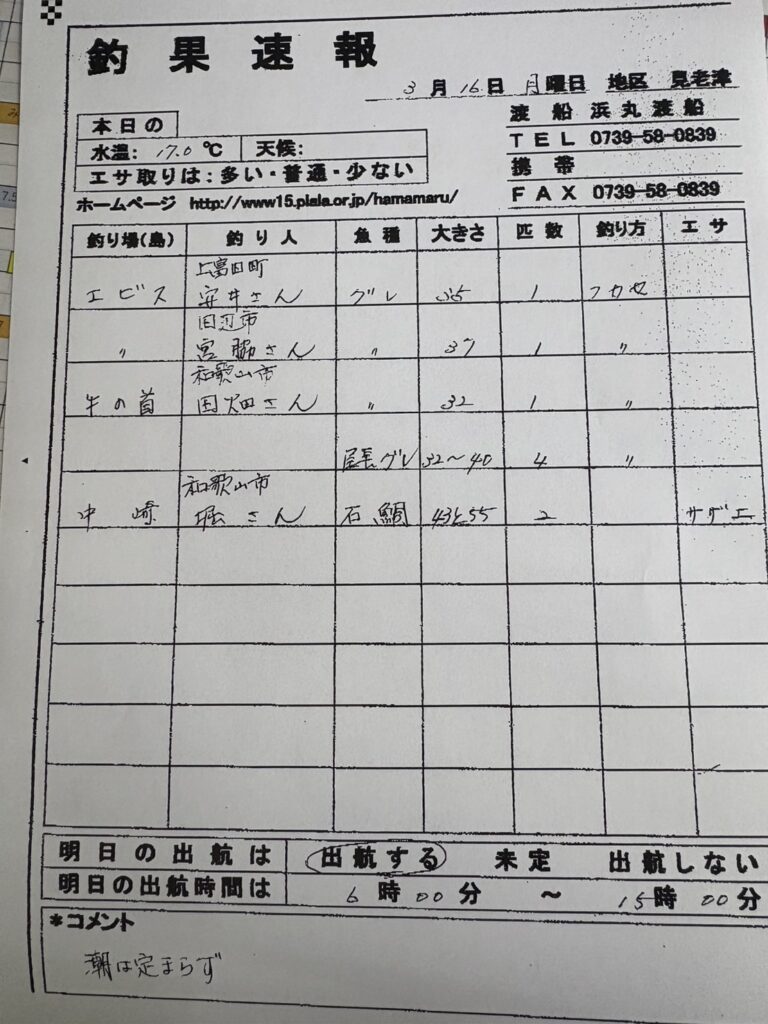 釣果速報
3月16日 月曜日 地区 見老津
渡船 浜丸渡船
TEL 0739-58-0839
携帯
FAX 0739-58-0839
本日の
水温: 17.0 ℃ 天候:
エサ取りは:多い・普通・少ない
ホームページ http://www15.plala.or.jp/hamamaru/
釣り場(島) 釣り人 魚種 大きさ 匹数 釣り方 エサ
上富田町
エビス 安井さん グレ 35 1 フカセ
田辺市
〃 宮脇さん 〃 37 1 〃
和歌山市
牛の首 田畑さん 〃 32 1 〃
尾長グレ 32〜40 4 〃
和歌山市
中崎 堀さん 石鯛 43と55 2 サザエ
明日の出航は 出航する 未定 出航しない
明日の出航時間は 6時00分 〜 15時00分
*コメント
潮は定まらず